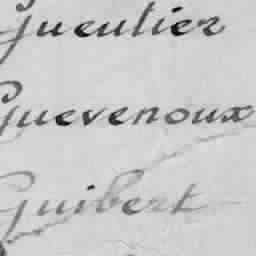 Gueulier
Guevenoux
Guibert